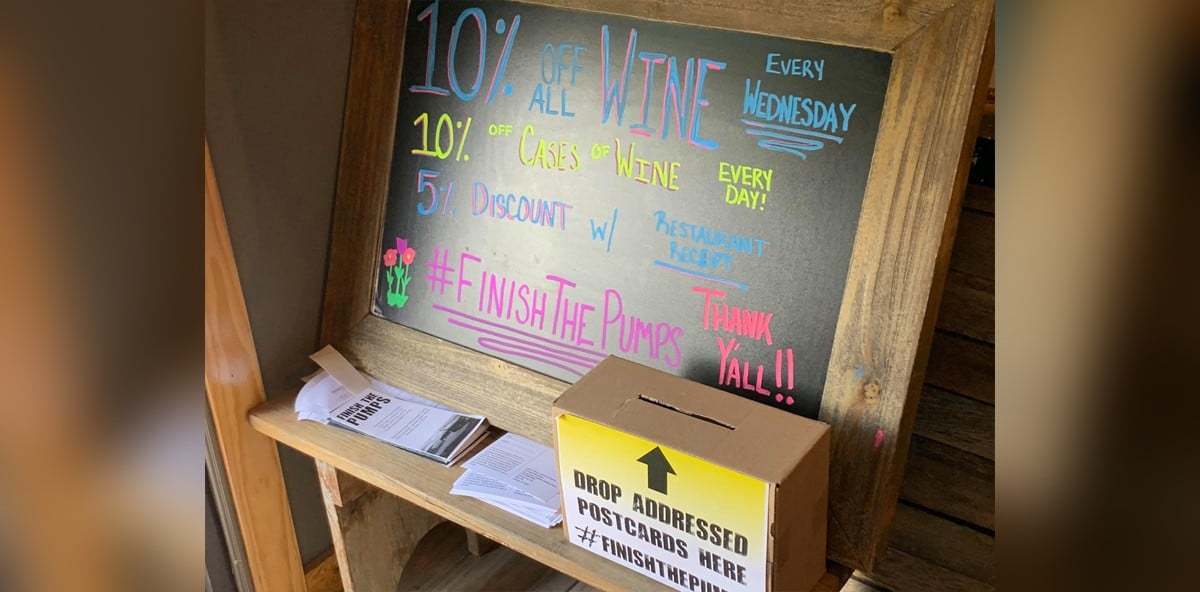 10% OFF ALL WINE EVERY WEDNESDAY
10% OFF CASES OF WINE EVERY DAY!
5% DISCOUNT W/ RESTAURANT RECEIPT
#FINISHTHEPUMPS THANK Y'ALL!!
FINISH THE
PUMPS
DROP ADDRESSED
POSTCARDS HERE
#FINISHTHEPUM